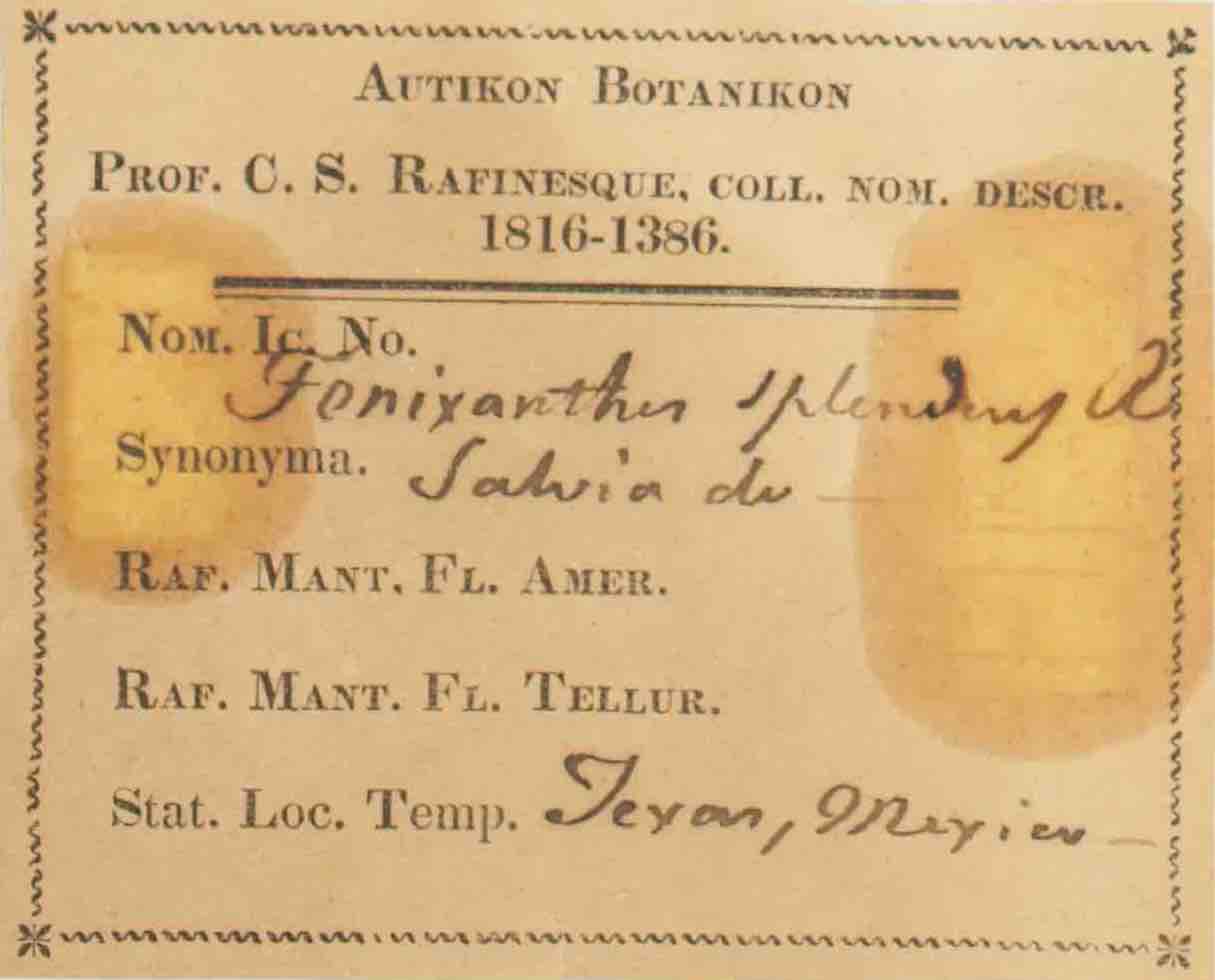 AUTIKON BOTANIKON
PROF. C. S. RAFINESQUE, COLL. NOM. DESCR.
1816-1386.
NOM. IC. NO.
Fenixanthus splendens R
Synonyma. Salvia do —
RAF. MANT. FL. AMER.
RAF. MANT. FL. TELLUR.
Stat. Loc. Temp. Texas, Mexico —